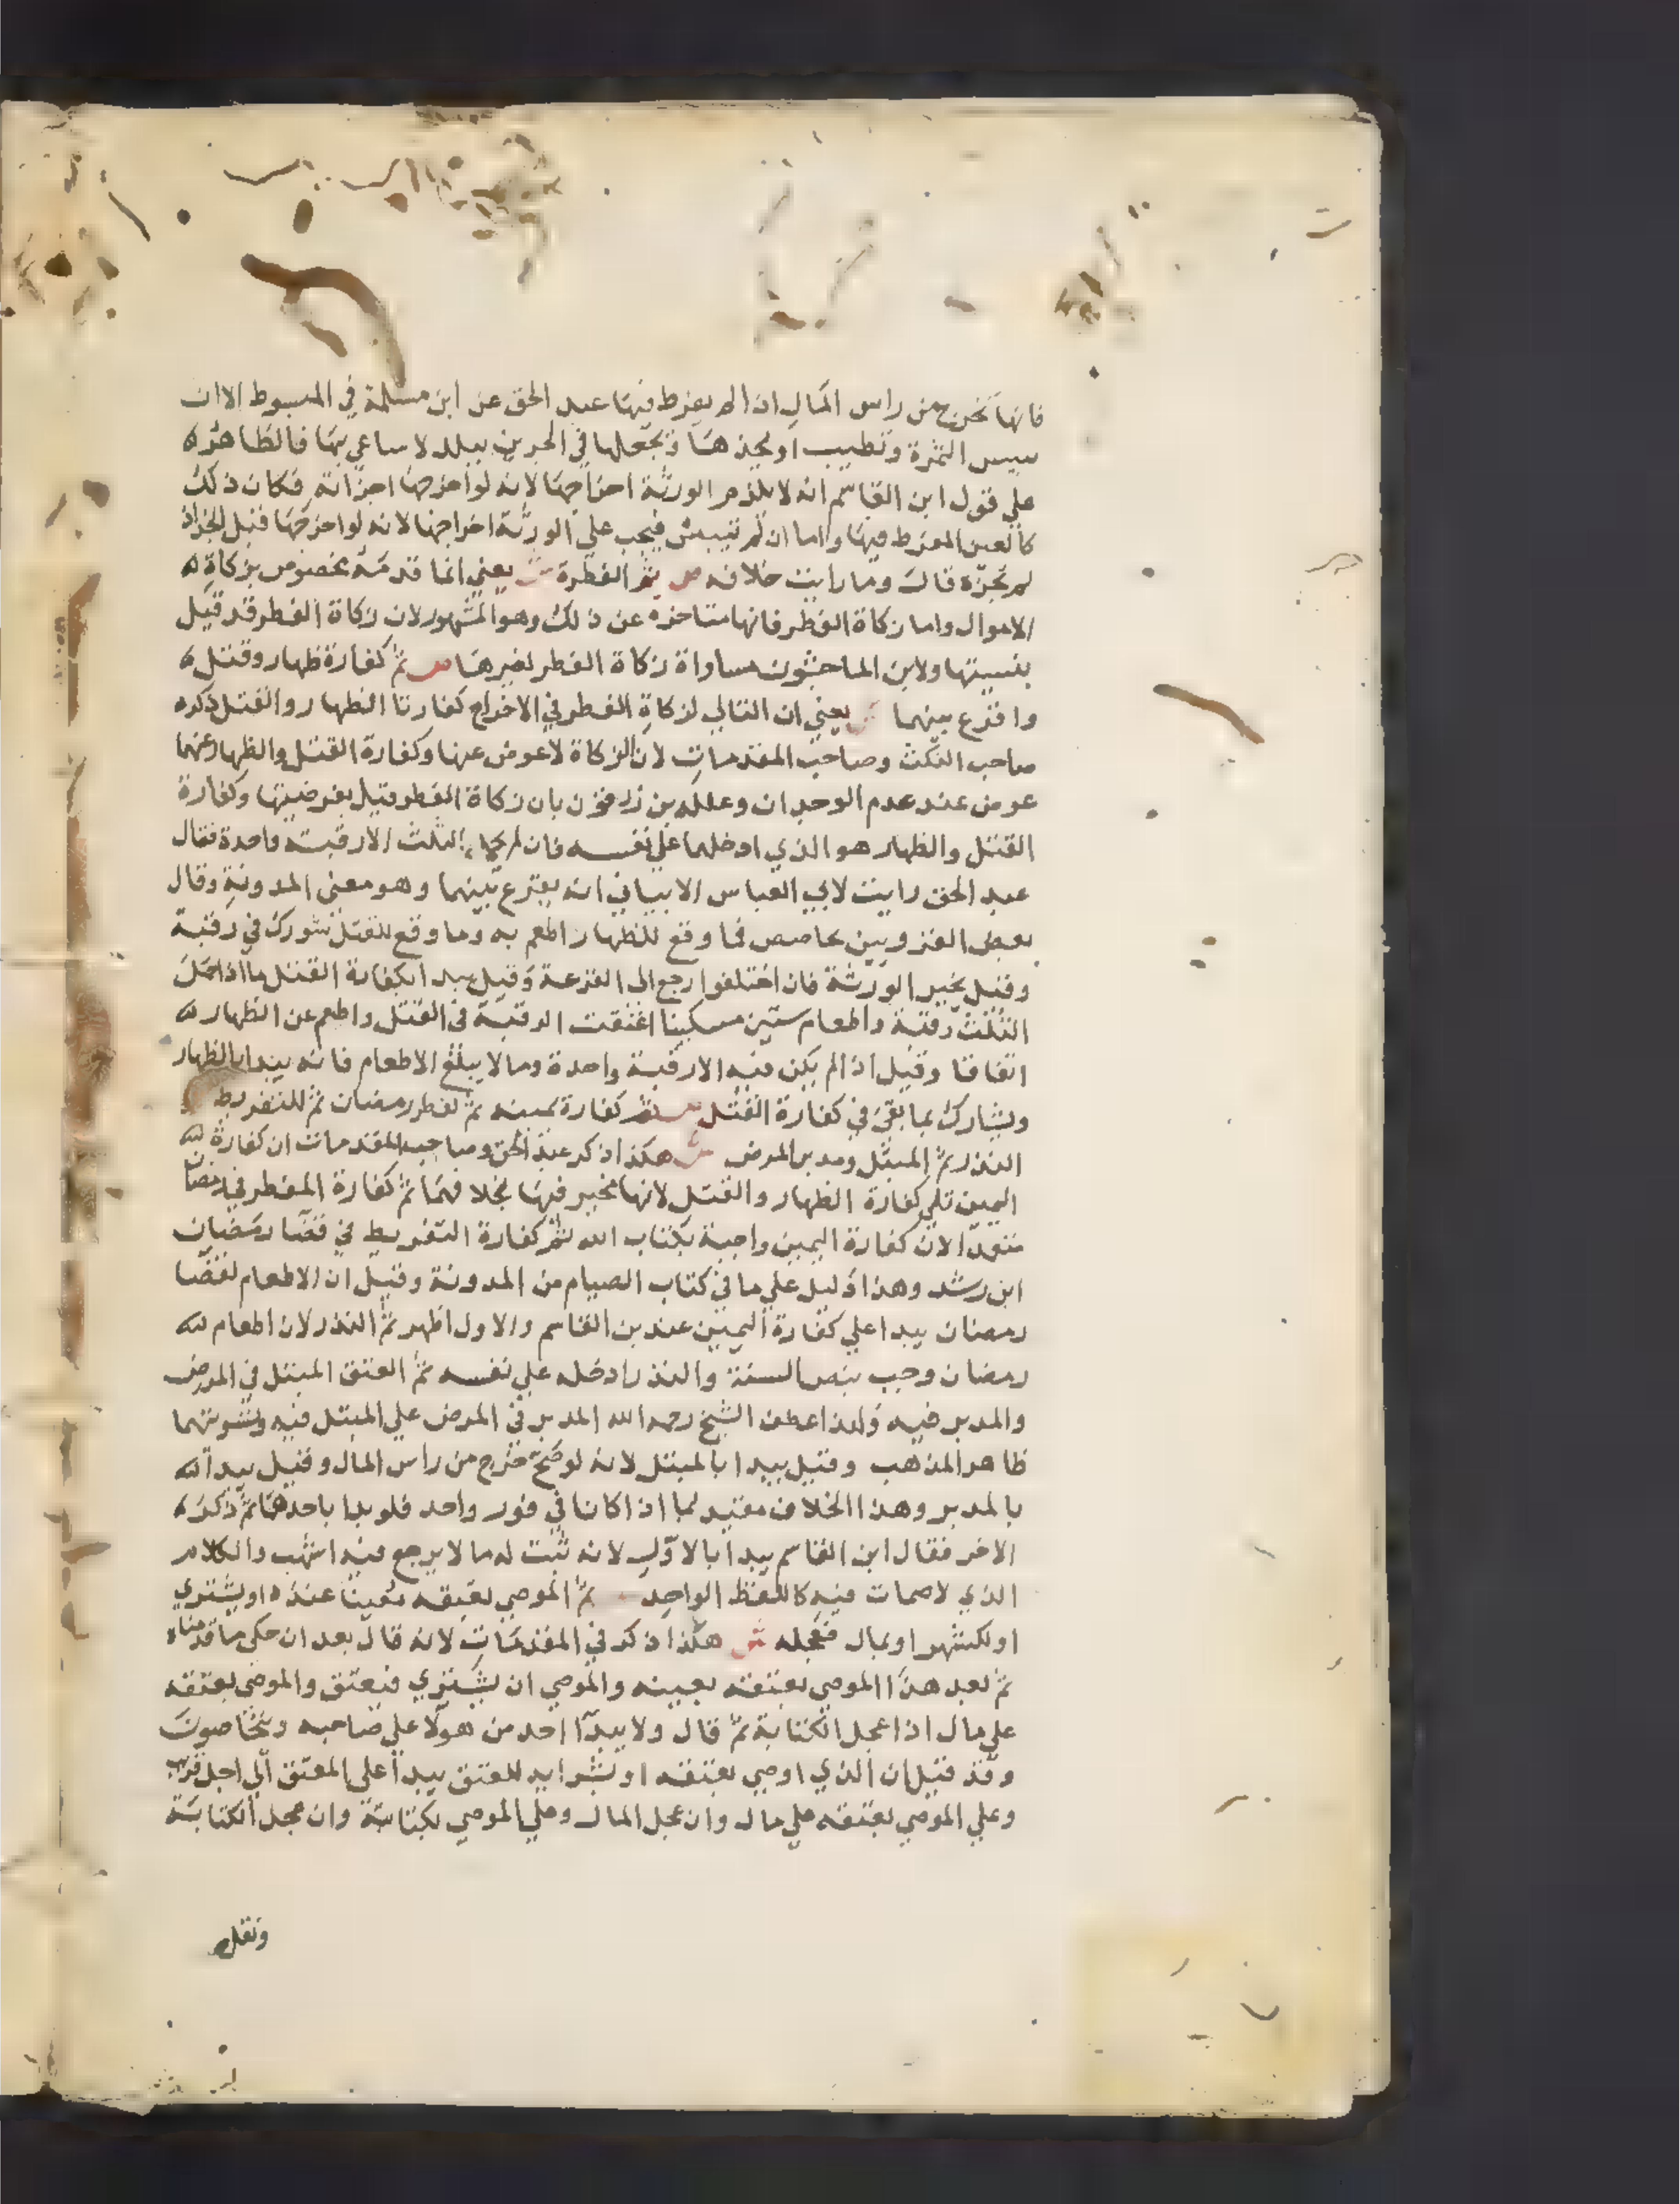 فانها تخرج من راس المال ان لم يفرط فيها عبد الحق عن ابن مسلمة في المبسوط الا ان
ييبس الثمرة وتطيب او يجذها ويجعلها في الجرين ببلد لا ساعي بها فالظاهر
علي قول ابن القاسم انه لا يلزم الورثة اخراجها لانه لو اخرجها اجزاته فكان ذلك
كالعين المفرط فيها واما ان لم تيبس فيجب علي الورثة اخراجها لانه لو اخرجها قبل الجذاذ
لم تجزه قال وما رايت خلافه ص ثم الفطرة ش يعني انما قدمه مخصوص بزكاة
الاموال واما زكاة الفطر فانها متاخره عن ذلك وهو المشهور لان زكاة الفطر قد قيل
بنسيتها ولابن الماجشون مساواة زكاة الفطر لغيرها ص ثم كفارة ظهار وقتل
واقرع بينهما ش يعني ان التالي لزكاة الفطر في الاخراج كفارتا الظهار والقتل ذكره
صاحب النكت وصاحب المقدمات لان الزكاة لا عوض عنها وكفارة القتل والظهار عنهما
عوض عند عدم الوجدان وعلله بن زرقون بان زكاة الفطر قيل بفرضيتها وكفارة
القتل والظهار هو الذي ادخلهما علي نفسه فان لم يحمل الثلث الا رقبة واحدة فقال
عبد الحق رايت لابي العباس الابياني انه يقرع بينهما وهو معني المدونة وقال
بعض القرويين يحاصص فما وقع للظهار اطعم به وما وقع للقتل شورك في رقبة
وقيل يخير الورثة فان اختلفوا رجع الي القرعة وقيل يبدا بكفارة القتل ما اذا حمل
الثلث رقبة واطعام ستين مسكينا اعتقت الرقبة في القتل واطعم عن الظهار
اتفاقا وقيل اذا لم يكن فيه الا رقبة واحدة وما لا يبلغ الاطعام فانه يبدا بالظهار
ويشارك بما بقي في كفارة القتل ص ثم كفارة يمينه ثم لفطر رمضان ثم للتفريط
النذر ثم المبتل ومدبر المرض ش هكذا ذكر عبد الحق وصاحب المقدمات ان كفارة
اليمين تلي كفارة الظهار والقتل لانها مخير فيها بخلافهما ثم كفارة المفطر في رمضان
متعمدا لان كفارة اليمين واجبة بكتاب الله ثم كفارة التفريط في قضا رمضان
ابن رشد وهذا دليل علي ما في كتاب الصيام من المدونة وقيل ان الاطعام لقضا
رمضان يبدا علي كفارة اليمين عند بن القاسم والاول اظهر ثم النذر لان اطعام
رمضان وجب بنص السنة والنذر ادخله علي نفسه ثم العتق المبتل في المرض
والمدبر فيه ولهذا عطف الشيخ رحمه الله المدبر في المرض علي المبتل فيه وتسويتهما
ظاهر المذهب وقيل يبدا بالمبتل لانه لو صح خرج من راس المال وقيل يبدا
بالمدبر وهذا الخلاف مقيد بما اذا كانا في فور واحد فلو بدا باحدهما ثم ذكر
الاخر فقال ابن القاسم يبدا بالاول لانه ثبت له ما لا يرجع فيه اشهب والكلام
الذي لا صمات فيه كاللفظ الواحد ثم الموصي بعتقه معينا عنده او يشتري
او لكشهر او بمال فعجله ش هكذا ذكر في المقدمات لانه قال بعد ان حكي ما قدمناه
ثم بعد هذا الموصي بعتقه بعينه والموصي ان يشتري فيعتق والموصي بعتقه
علي مال اذا عجل الكتابة ثم قال ولا يبدا احد من هولا علي صاحبه ويتحاصون
وقد قيل ان الذي اوصي بعتقه او بشرايه للعتق يبدا علي المعتق الي اجل قريب
وعلي الموصي بعتقه علي مال وان عجل المال وعلي الموصي بكتابته وان عجل الكتابة
ونقل